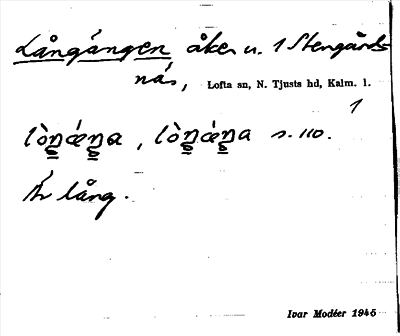 Långángen åker u. 1 Stengårds-
näs, Lofta sn, N. Tjusts hd, Kalm. l.
1
lòŋǽŋa, lòŋǽŋa s. 110.
Är lång.
Ivar Modéer 1945